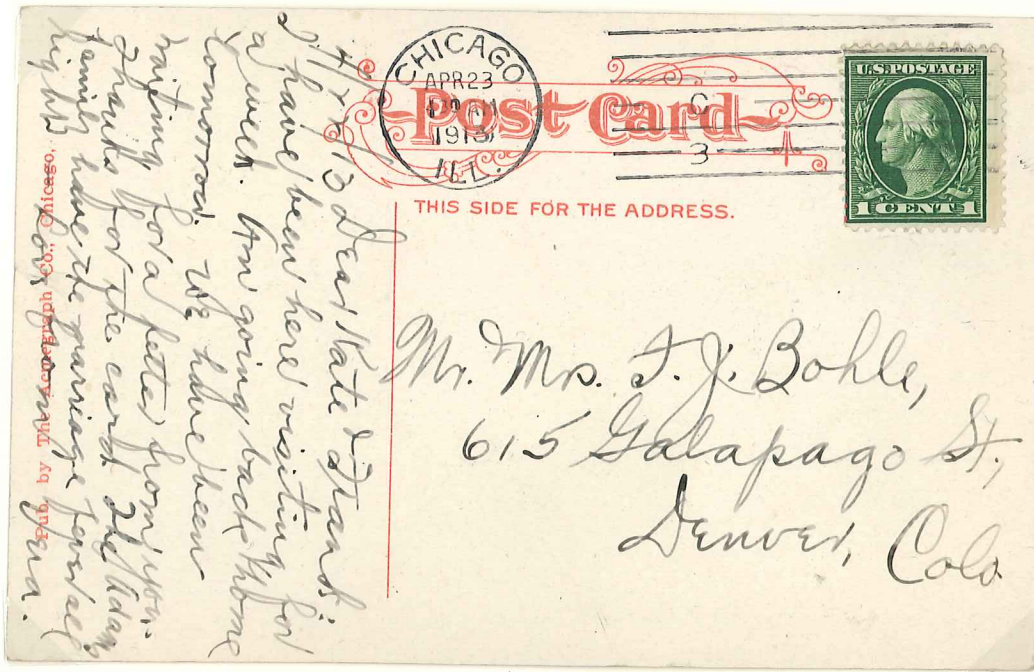 CHICAGO
APR 23
1913
ILL.
C
3
U.S. POSTAGE
1 CENT 1
Post Card
THIS SIDE FOR THE ADDRESS.
Mr. & Mrs. F. J. Bohle,
615 Galapago St.,
Denver, Colo.
Dear Kate & Frank:
I have been here visiting for
a week. Am going back home
tomorrow. We have been
waiting for a letter from you.
Thanks for the card. The Adams
family have the marriage fever all
right.
Pub. by The Acmegraph Co., Chicago.